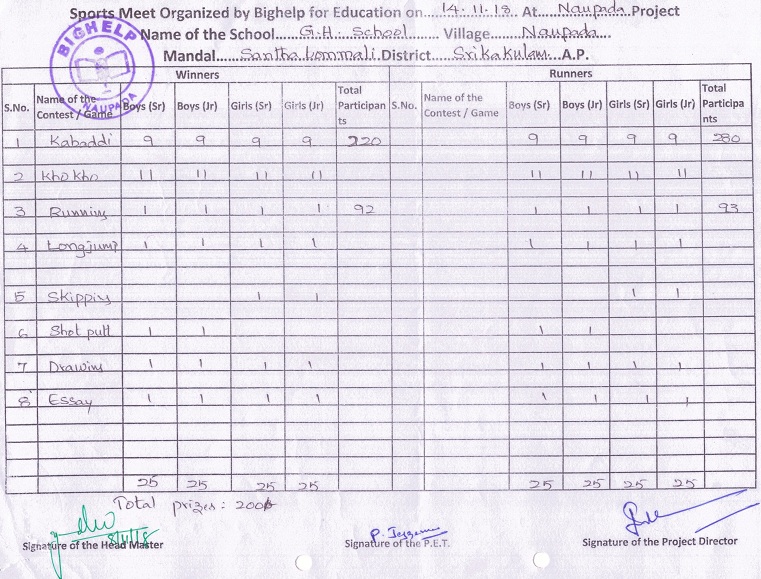 Sports Meet Organized by Bighelp for Education on 14.11.18 At Naupada Project
Name of the School G.H. School Village Naupada
Mandal Santha kommali District Srikakulam A.P.
BIGHELP
NAUPADA
Winners Runners
S.No. Name of the Contest / Game Boys (Sr) Boys (Jr) Girls (Sr) Girls (Jr) Total Participants S.No. Name of the Contest / Game Boys (Sr) Boys (Jr) Girls (Sr) Girls (Jr) Total Participants
1 Kabaddi 9 9 9 9 220 9 9 9 9 280
2 Kho kho 11 11 11 11 11 11 11 11
3 Running 1 1 1 1 92 1 1 1 1 93
4 Longjump 1 1 1 1 1 1 1 1
5 Skipping 1 1 1 1
6 Shot putt 1 1 1 1
7 Drawing 1 1 1 1 1 1 1 1
8 Essay 1 1 1 1 1 1 1 1
25 25 25 25 25 25 25 25
Total prizes: 200
8/11/18
Signature of the Head Master Signature of the P.E.T. Signature of the Project Director